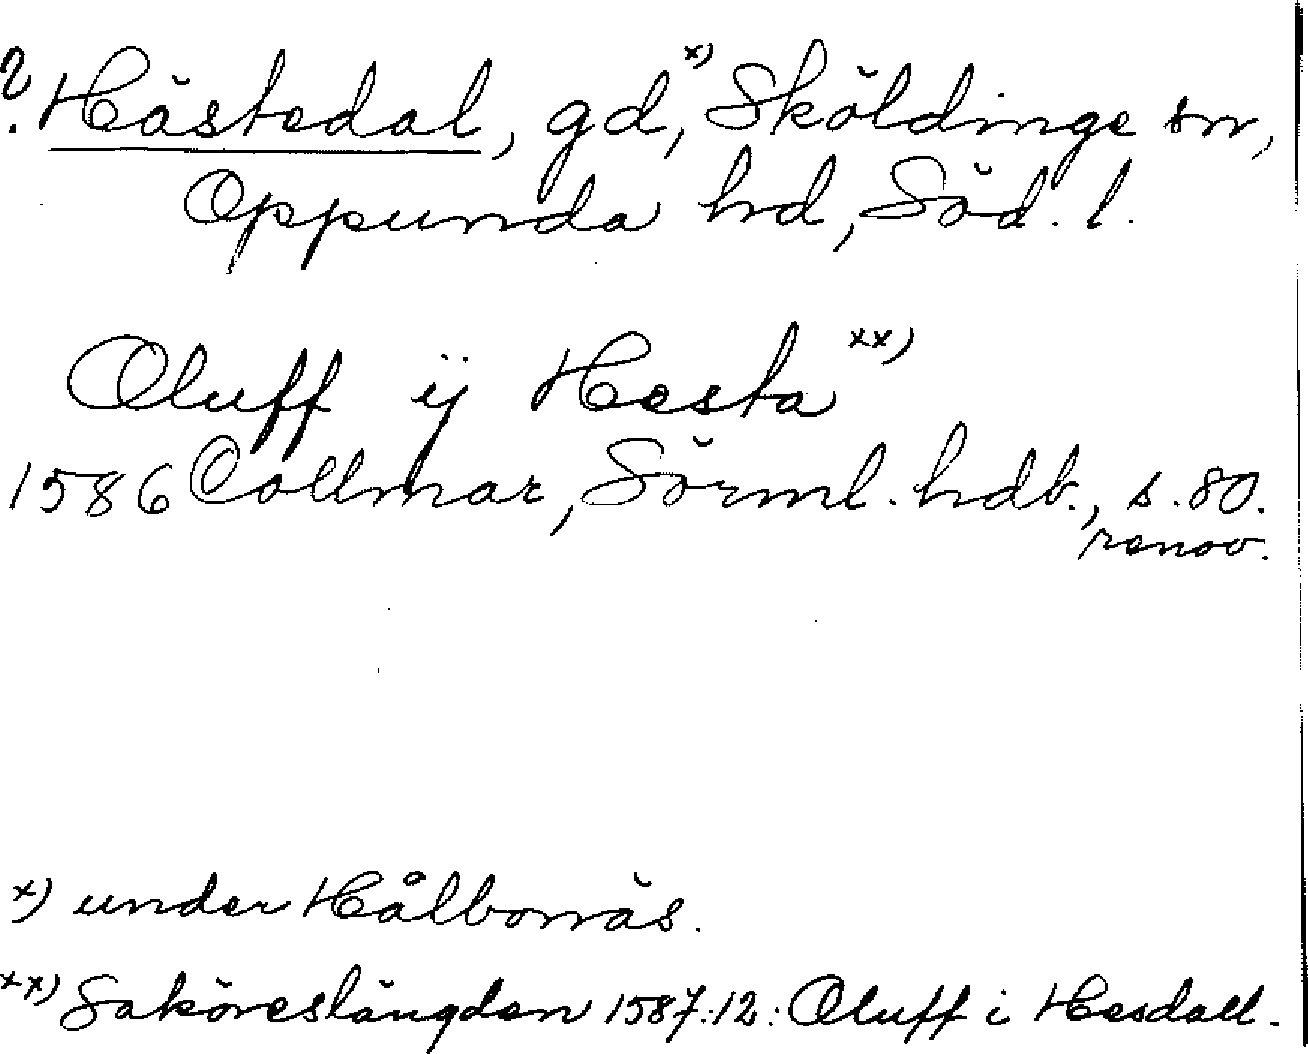 ? Hästedal, gd,x) Sköldinge sn,
Oppunda hd, Söd. l.
Oluff ÿ Hesta xx)
1586 Collmar, Sörml. hdb., s. 80.
renov.
x) under Hålbonäs.
xx) Saköreslängden 1587:12: Oluff i Hesdall.